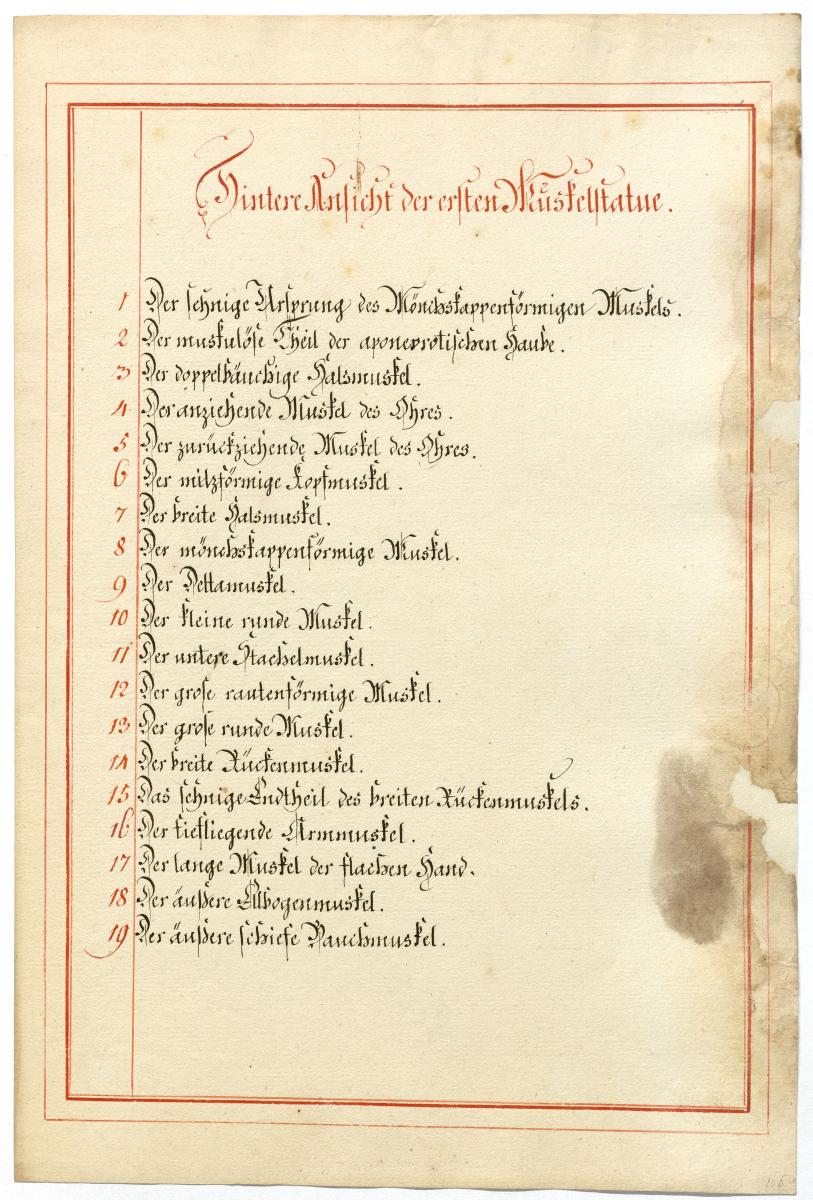 Hintere Ansicht der ersten Muskelstatue.
1 Der sehnige Ursprung des Mönchskappenförmigen Muskels.
2 Der muskulöse Theil der aponevrotischen Haube.
3 Der doppelbäuchige Halsmuskel.
4 Der anziehende Muskel des Ohres.
5 Der zurückziehende Muskel des Ohres.
6 Der milzförmige Kopfmuskel.
7 Der breite Halsmuskel.
8 Der mönchskappenförmige Muskel.
9 Der Deltamuskel.
10 Der kleine runde Muskel.
11 Der untere Stachelmuskel.
12 Der grose rautenförmige Muskel.
13 Der grose runde Muskel.
14 Der breite Rückenmuskel.
15 Das sehnige Endtheil des breiten Rückenmuskels.
16 Der tiefliegende Armmuskel.
17 Der lange Muskel der flachen Hand.
18 Der äußere Ellbogenmuskel.
19 Der äußere schiefe Bauchmuskel.